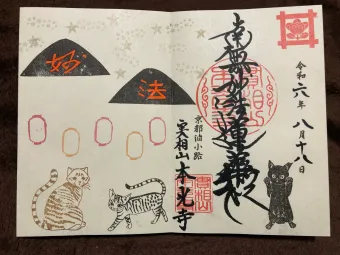 令和六年 八月十八日
南無妙法蓮華経
京都油小路
実相山本光寺
妙
法